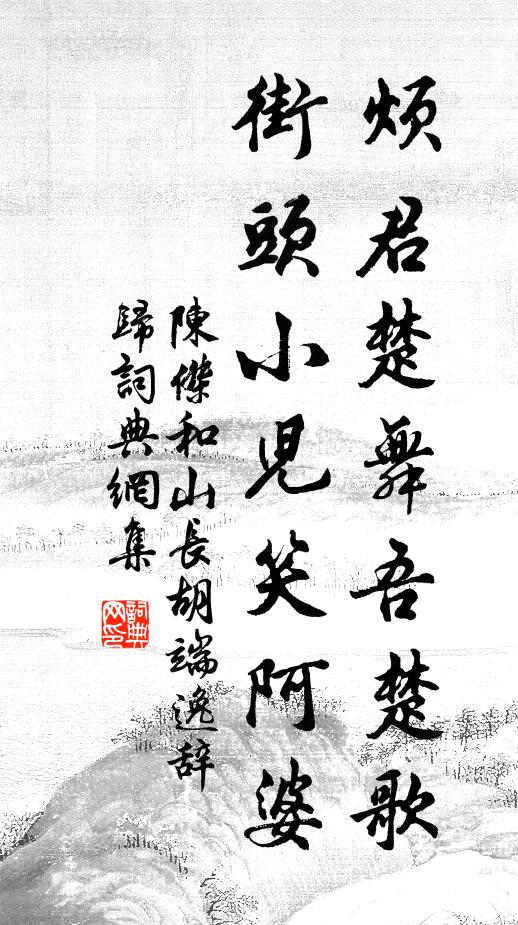 煩君楚舞吾楚歌
街頭小児笑阿婆
陳傑和山長胡端逸辞
歸詞典網集
詞典网印